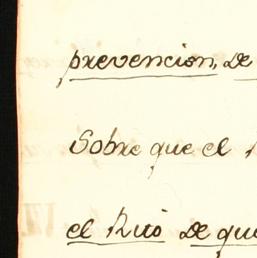 prevencion, de
Sobre que el
el Rito de que